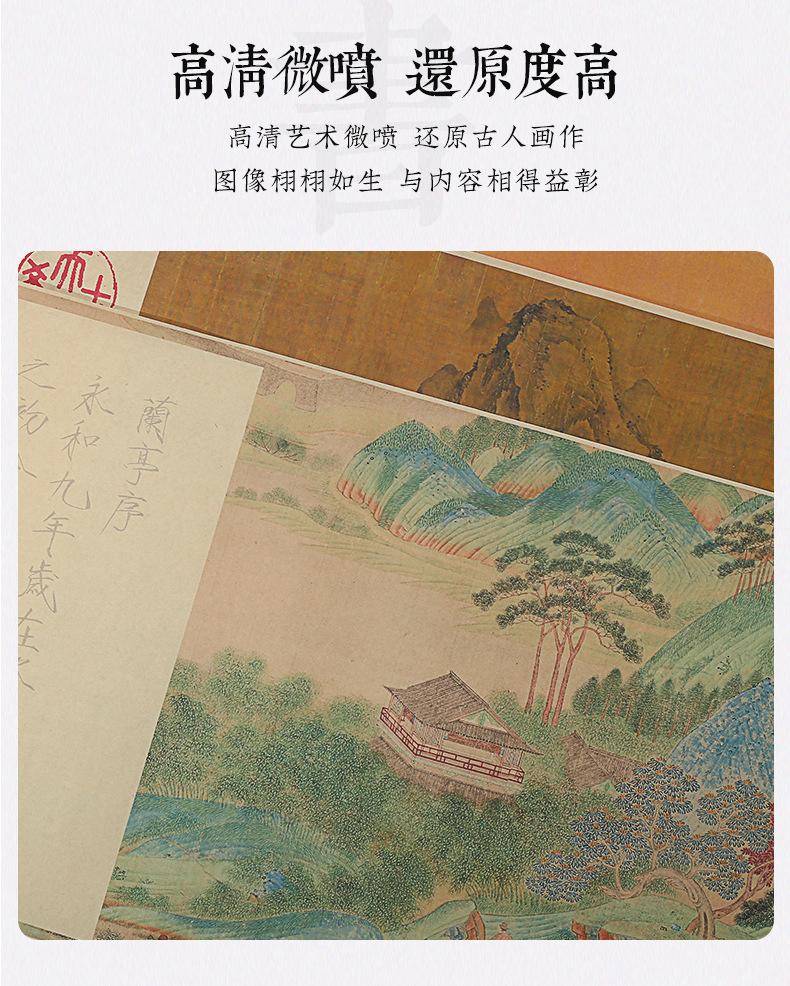 書
高清微噴 還原度高
高清艺术微喷 还原古人画作
图像栩栩如生 与内容相得益彰
蘭亭序
永和九年歲在
之初